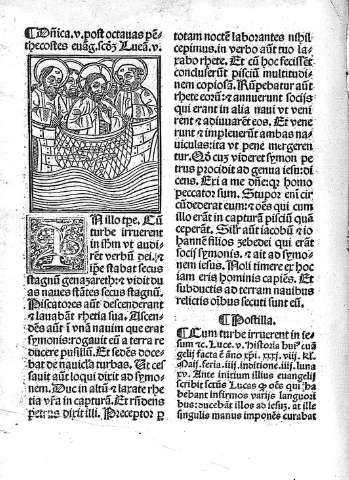 Dñica .v. post octauas pẽ-
thecostes euãg. scõʒ Lucã .v.
IN illo tpe. Cũ
turbe irruerent
in iesum vt audi-
rẽt verbũ dei. et
ipse stabat secus
stagnũ genazareth: et vidit du
as naues stãtes secus stagnũ.
Piscatores aũt descenderant
et lauabãt rhetia sua. Ascen-
dẽs aũt ĩ vnã nauim que erat
symonis: rogauit eũ a terra re
ducere pusillũ. Et sedẽs doce-
bat de nauicĩa turbas. Ut ces
sauit aũt loqui dixit ad symo-
nem. Duc in altũ et laxate rhe
tia vr̃a in capturã. Et rñdens
symon dixit illi. Preceptor ꝑ
totam noctem laborantes nihil
cepimus. in verbo aũt tuo la-
xabo rhete. Et cũ hoc fecissẽt
concluserũt pisciũ multitudi-
nem copiosã. Rũpebatur aũt
rhete eorũ: et annuerunt socijs
qui erant in alia naui vt veni
rent et adiuuarẽt eos. Et vene
runt et impleuerũt ambas na-
uiculas: ita vt pene mergeren
tur. Qð cũ videret symon pe-
trus procidit ad genua iesu: di
cens. Exi a me dñe: qꝛ homo
peccator sum. Stupor eñ cir
cũdederat eum: et oẽs qui cum
illo erãt in capturã pisciũ quã
ceperãt. Silr̃ aũt iacobũ et io
hannẽ filios zebedei qui erãt
socij symonis. et ait ad symo-
nem iesus. Noli timere ex hoc
iam eris homines capiẽs. Et
subductis ad terram nauibus
relictis oĩbus secuti sunt eũ.
Postilla.
Cum turbe irruerent in ie-
sum etc. Luce .v. Historia huiꝰ euã
gelij facta ẽ anno xp̃i. xxxj. viij. kl.
Maij. feria. iij. inditione. iiij. luna
xv. Ante initium illius euangelij
scribit sectus Lucas ꝙ oẽs qui ha
bebant infirmos varijs languori
bus: ducebãt illos ad iesuʒ. at ille
singulis manus imponẽs curabat